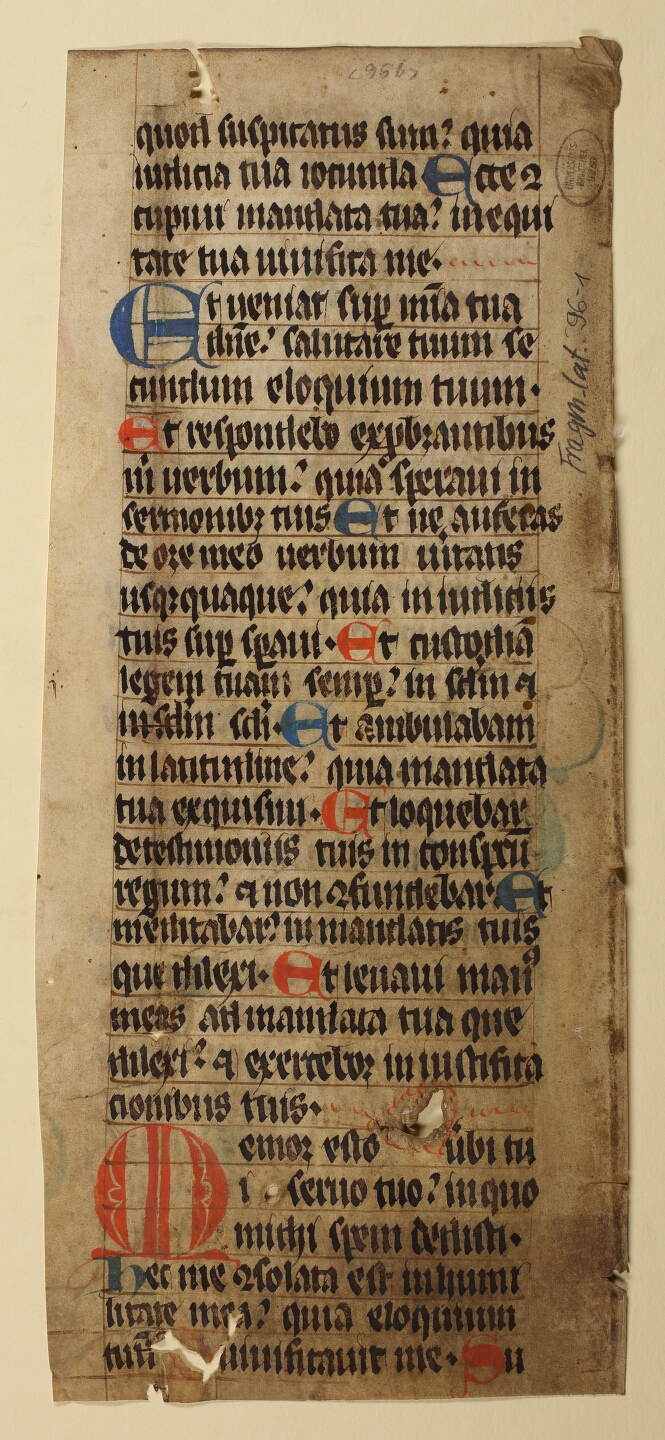 quod suspicatus sum? quia
iudicia tua iocunda Ecce ꝯ
cupiui mandata tua? in equi
tate tua uiuifica me.
Et ueniat sup̱ m̄ia tua
dn̄e? salutare tuum se
cundum eloquium tuum.
Et respondebo exp̱brantibus
m̄ uerbum? quia speraui in
sermonibꝫ tuis Et ne auferas
de ore meo uerbum uitatis
usqꝫquaque? quia in iudiciis
tuis sup̱ sp̱aui. Et custodiā
legem tuam semp̱? in sclm̄ ⁊
in sclm̄ scl̄i. Et ambulabam
in latitudine? quia mandata
tua exquisiui. Et loquebar
de testimoniis tuis in conspc̄u
regum? ⁊ non ꝯfundebar. Et
meditabar? in mandatis tuis
que dilexi. Et leuaui manꝰ
meas ad mandata tua que
dilexi? ⁊ exercebor in iustifica
cionibus tuis.
Memor esto ubi tu
i seruo tuo? in quo
michi spem dedisti.
hec me ꝯsolata est in humi
litate mea? quia eloquium
tuū uiuificauit me. Su
Fragm. lat. 96-1